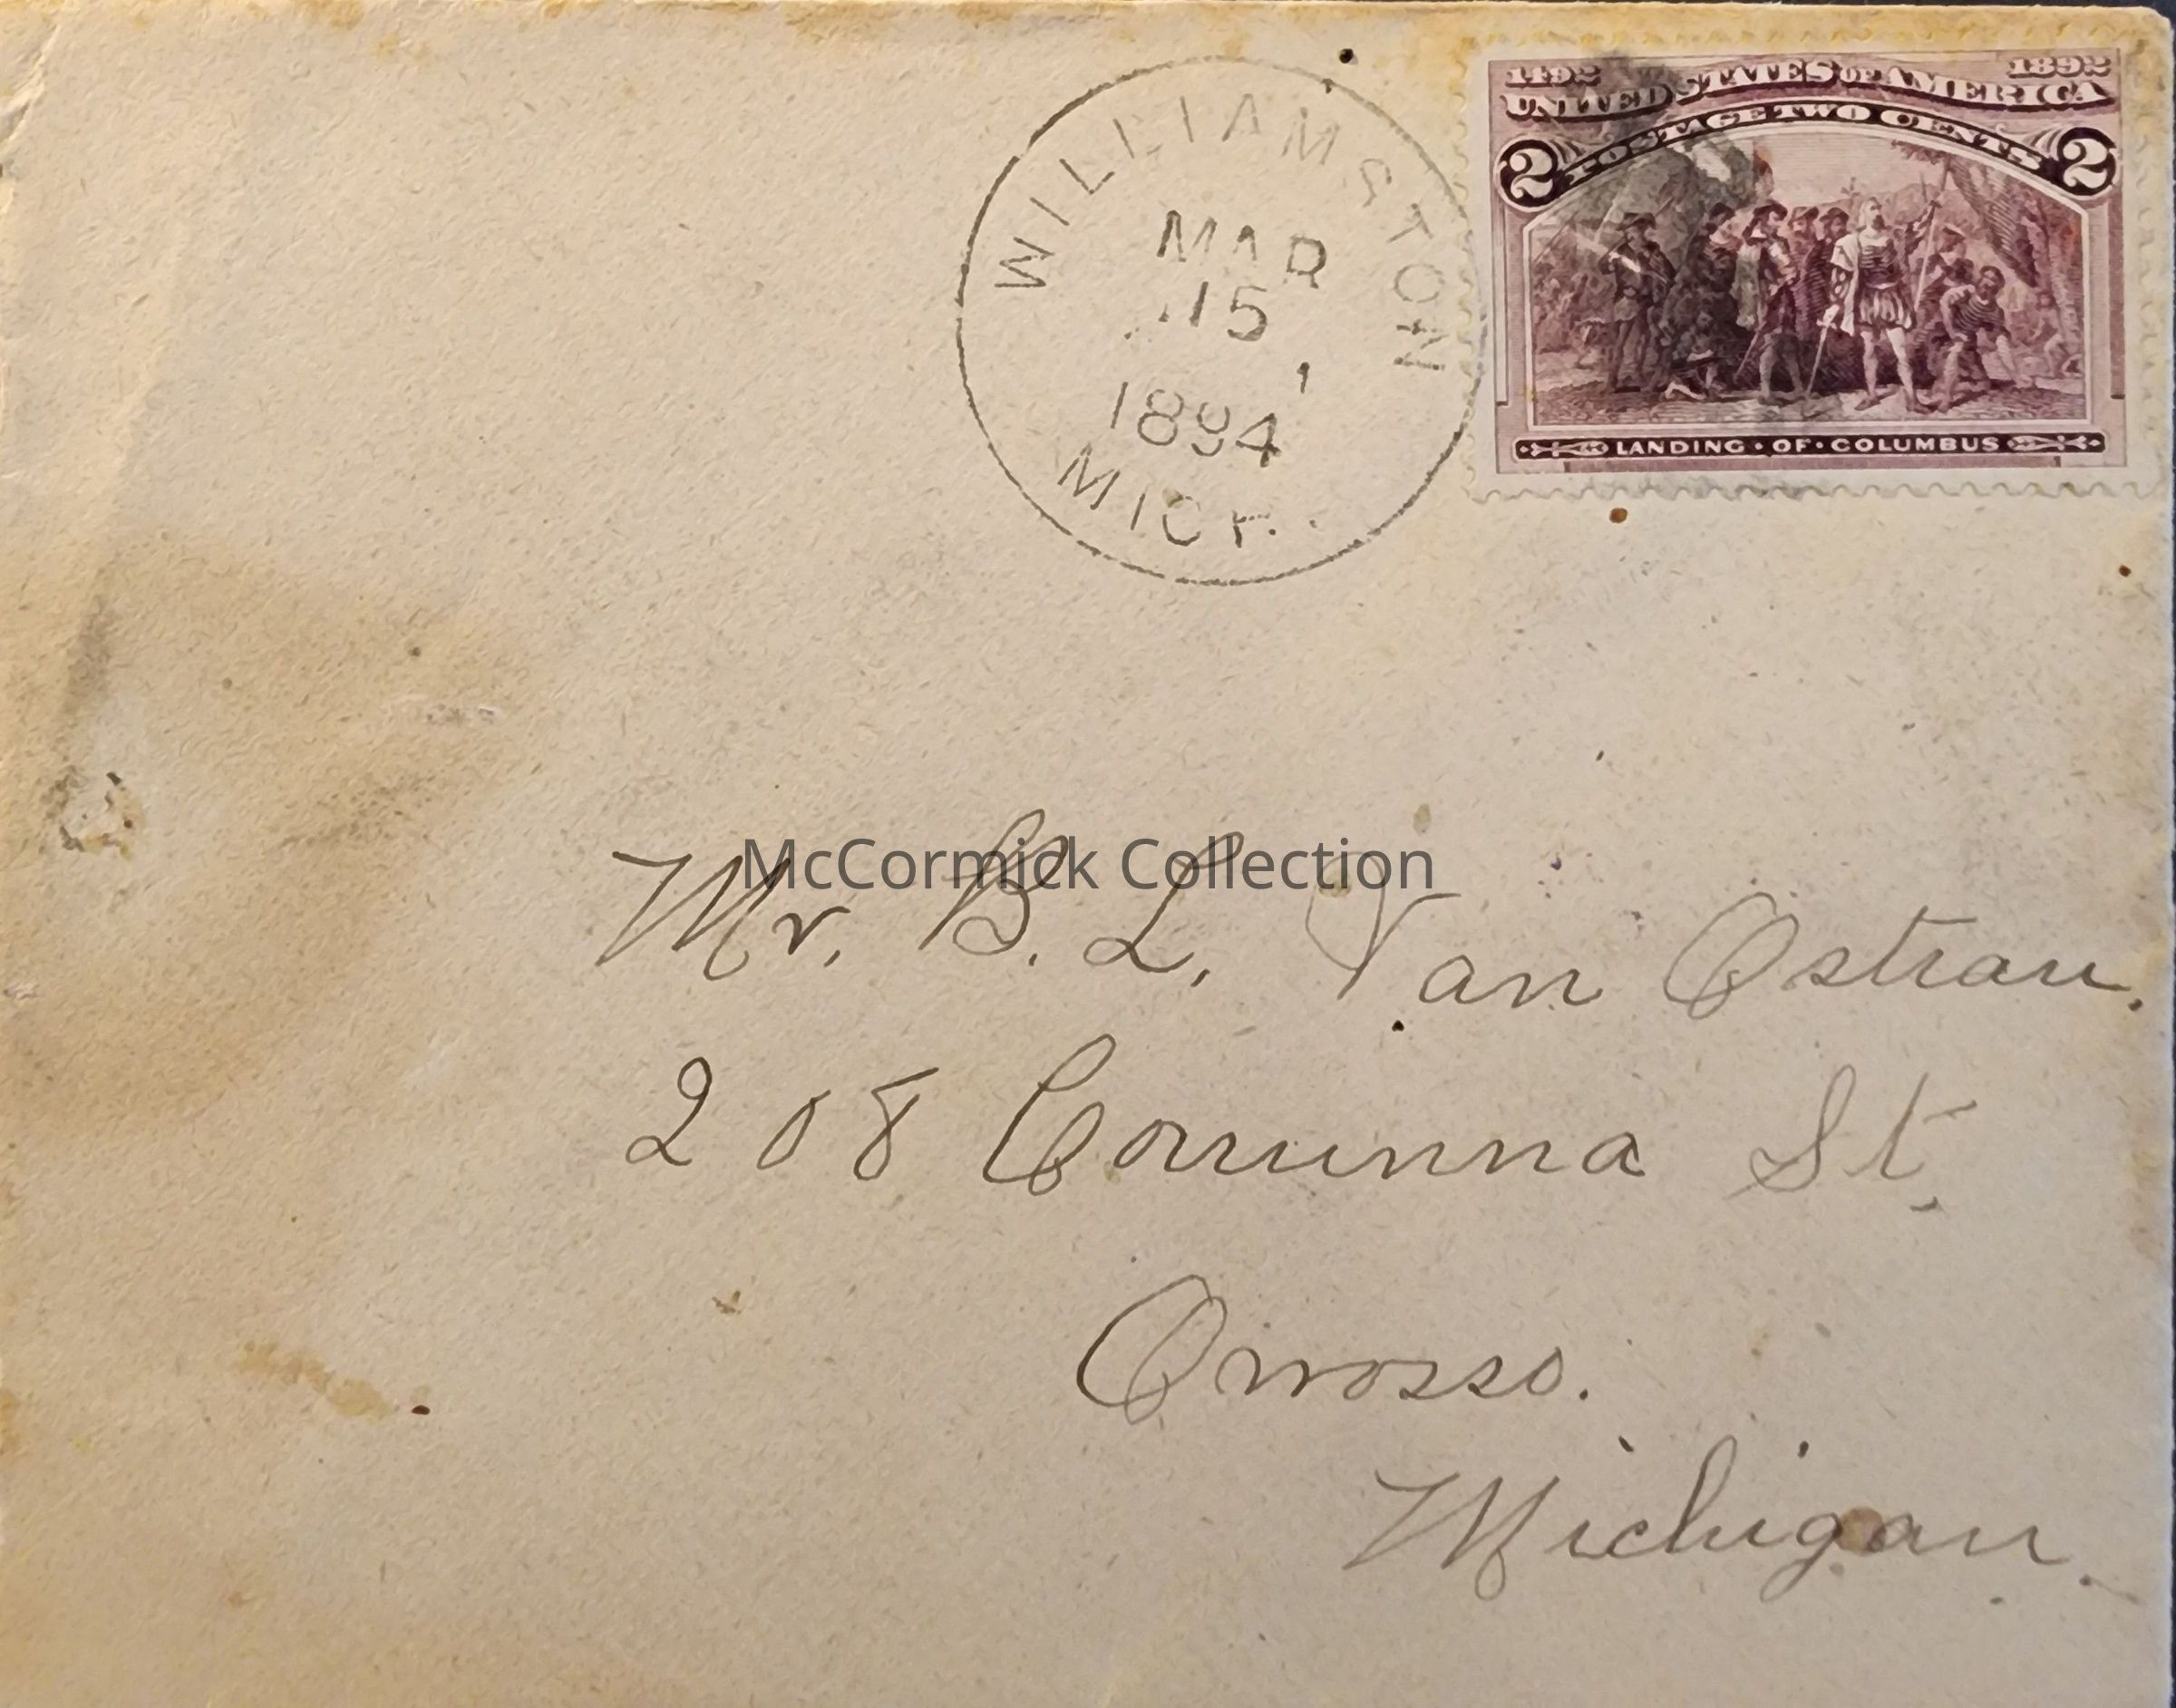 1492 1892
UNITED STATES OF AMERICA
POSTAGE TWO CENTS
2 2
LANDING · OF · COLUMBUS
WILLIAMSTON
MAR
15
1894
MICH.
McCormick Collection
Mr. B. L. Van Ostran.
208 Corunna St.
Owosso.
Michigan.